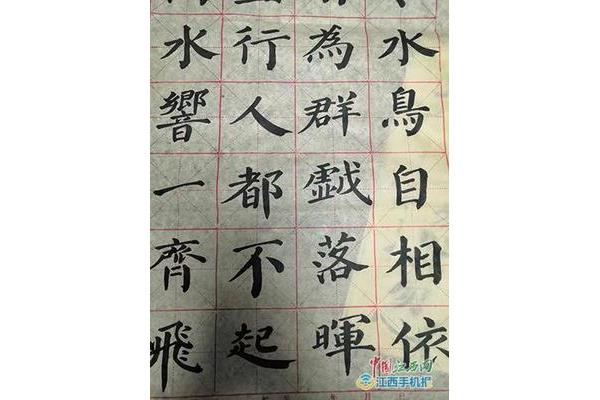 水鳥自相依
為群戯落暉
行人都不起
水響一齊飛
中国江西网
江西手机报